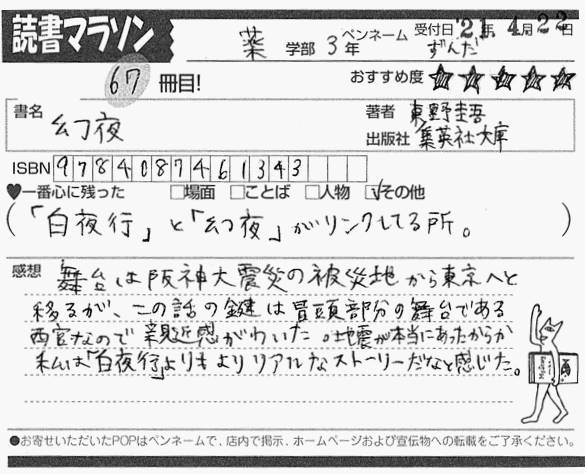 読書マラソン
薬 学部 3年 ペンネーム ずんだ 受付日 '21年 4月 22日
67 冊目! おすすめ度 ☆☆☆☆☆
書名 幻夜
著者 東野圭吾
出版社 集英社文庫
ISBN 9784087461343
♥一番心に残った □場面 □ことば □人物 ☑その他
(「白夜行」と「幻夜」がリンクしてる所。)
感想 舞台は阪神大震災の被災地から東京へと
移るが、この話の鍵は冒頭部分の舞台である
西宮なので親近感がわいた。地震が本当にあったからか
私は「白夜行」よりもよりリアルなストーリーだなと感じた。
●お寄せいただいたPOPはペンネームで、店内で掲示、ホームページおよび宣伝物への転載をご了承ください。